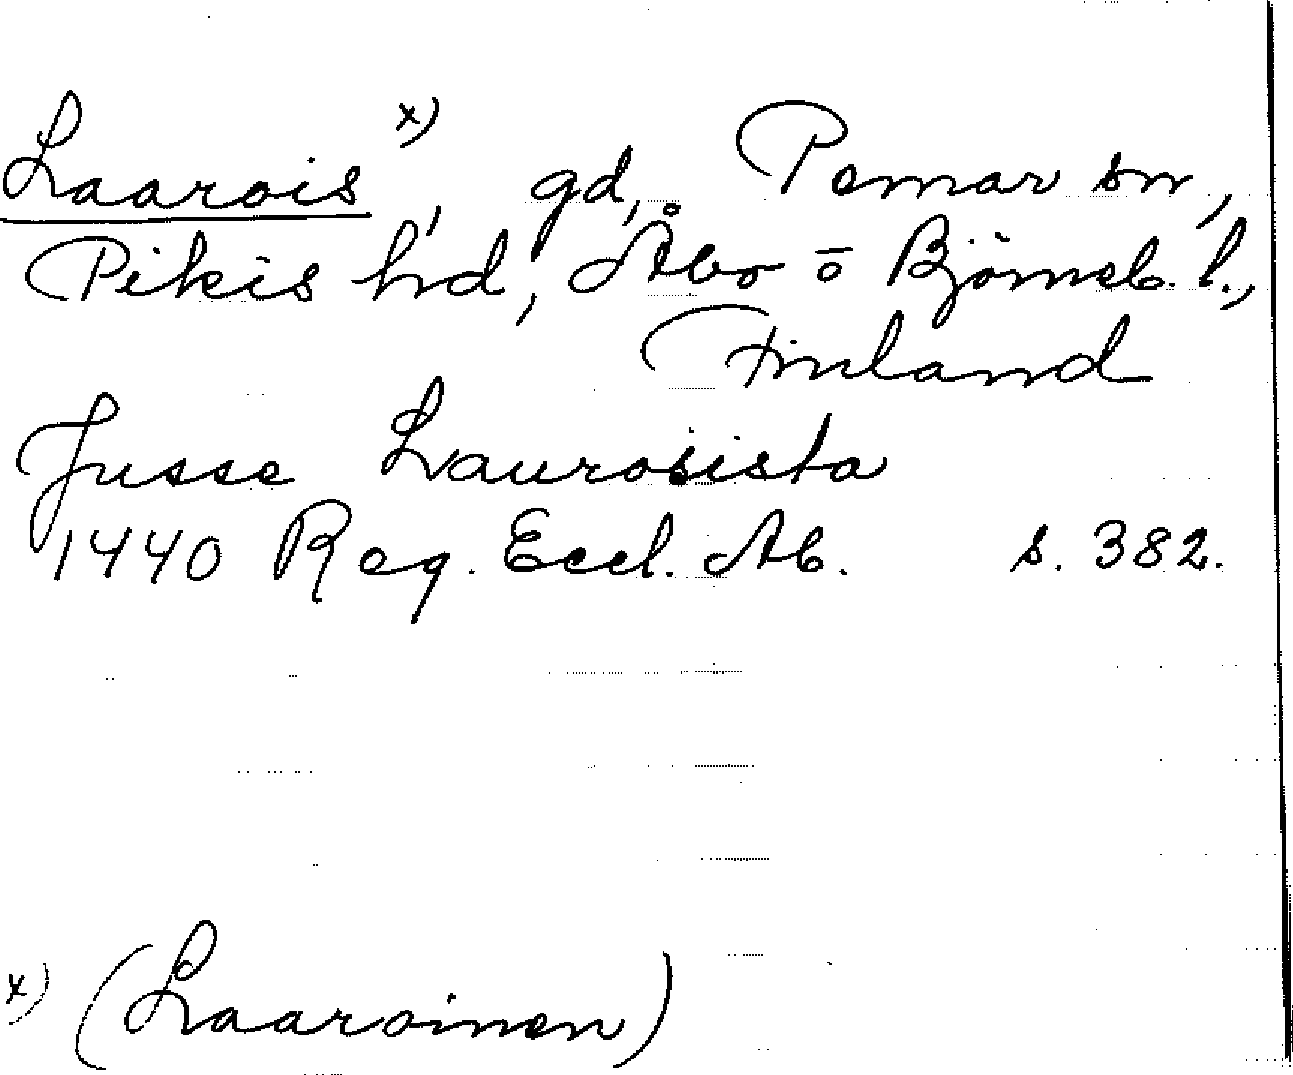 Laarois x), gd, Pemar sn,
Pikis hd, Åbo ō Björneb. l.,
Finland
Jusse Laurosista
1440 Reg. Eccl. Ab. s. 382.
x) (Laaroinen)